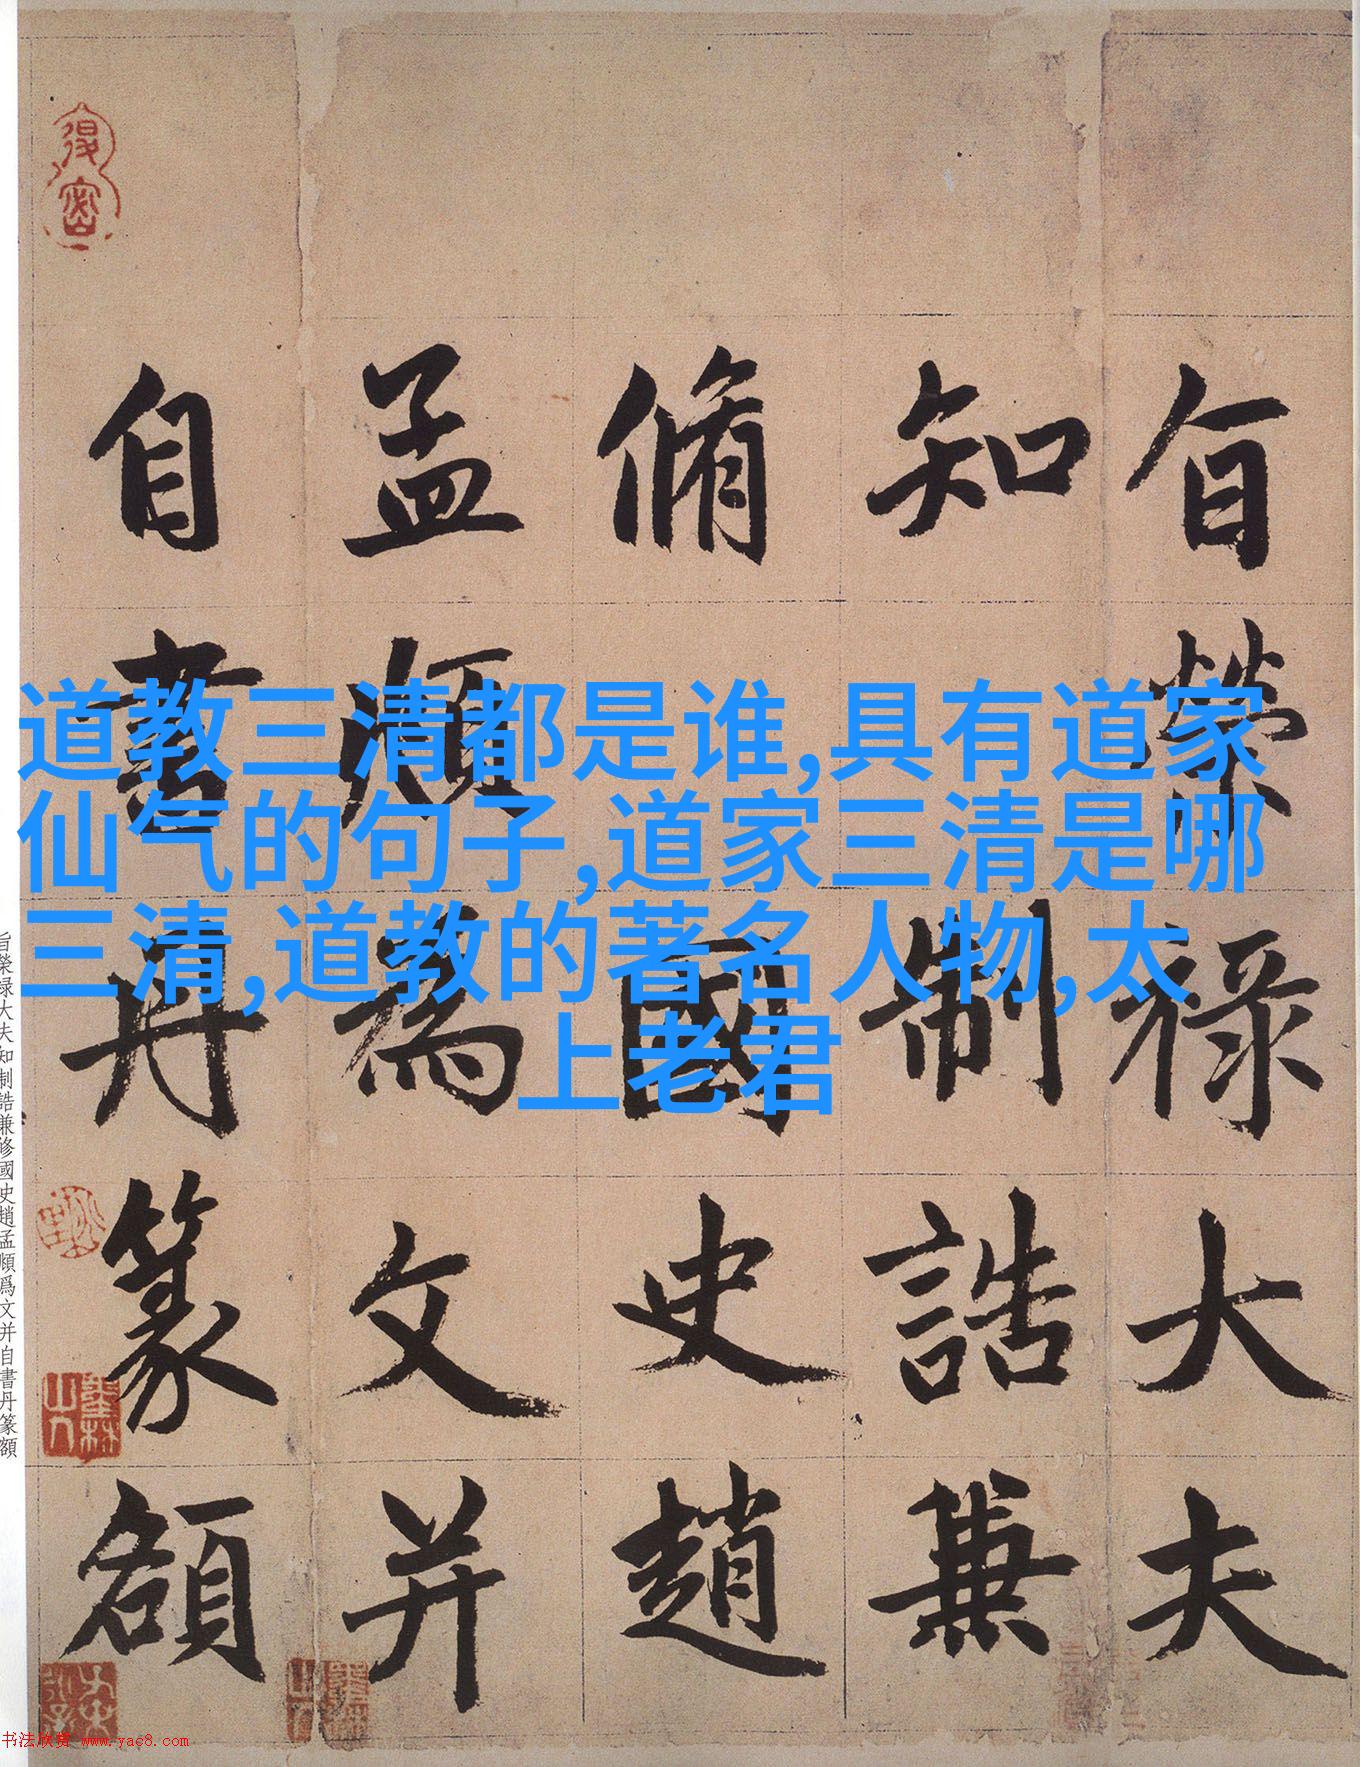 道教三清都是谁,具有道家
仙气的句子,道家三清是哪
三清,道教的著名人物,太
上老君
旨榮禄大夫
知制誥兼
脩國史趙
孟頫為文并
自書丹篆額
旨榮禄大夫知制誥兼修國史趙孟頫爲文并自書丹篆額
书法欣赏 www.yac8.com